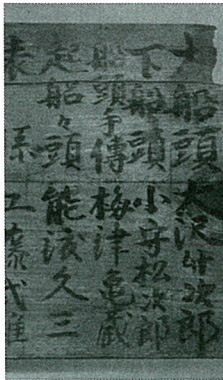 大船頭 大沢竹次郎
下船頭 小守松次郎
船頭手傳 梅津亀蔵
起船々頭 能渡久三
表係 工藤